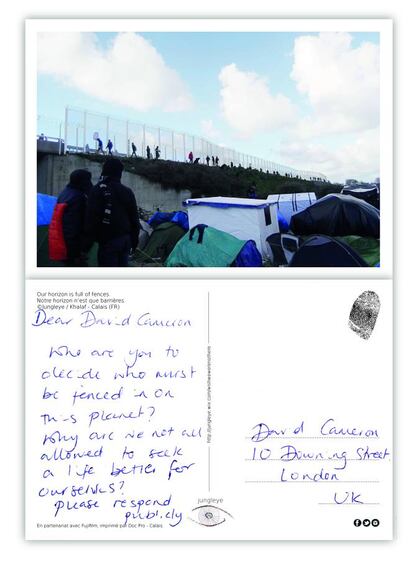 Our horizon is full of fences.
Notre horizon n'est que barrières.
©Jungleye / Khalaf - Calais (FR)
Dear David Cameron
Who are you to
decide who must
be fenced in on
this planet?
Why are we not all
allowed to seek
a life better for
ourselves?
please respond
publicly
En partenariat avec Fujifilm, imprimé par Doc Pro - Calais
jungleye
David Cameron
10 Downing Street
London
UK